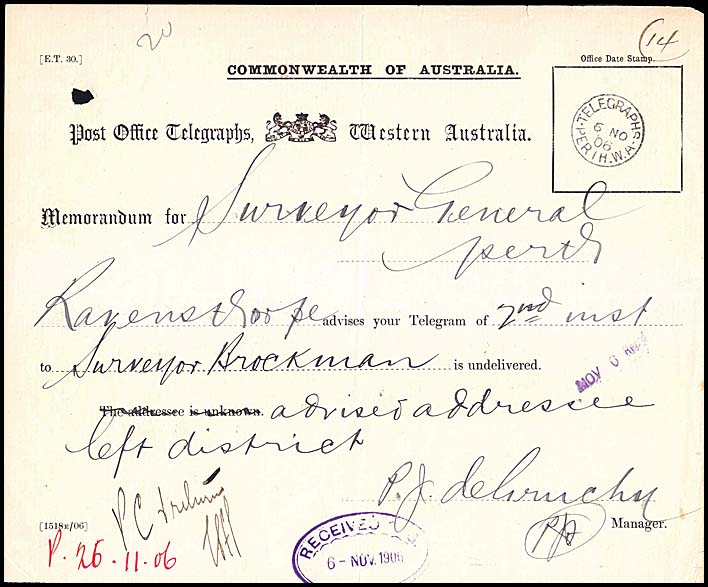 20
(14
[E.T. 30.]
Office Date Stamp.
COMMONWEALTH OF AUSTRALIA.
TELEGRAPHS
6 NO
06
PERTH.W.A
Post Office Telegraphs, Western Australia.
Memorandum for Surveyor General
Perth
Ravensthorpe advises your Telegram of 2nd inst
to Surveyor Brockman is undelivered.
NOV 6 RECD
The addressee is unknown. advised addressee
left district
P.J. deGruchy
Manager.
[1518E/06]
P.C.
P. 26.11.06
RECEIVED
6-NOV.1906